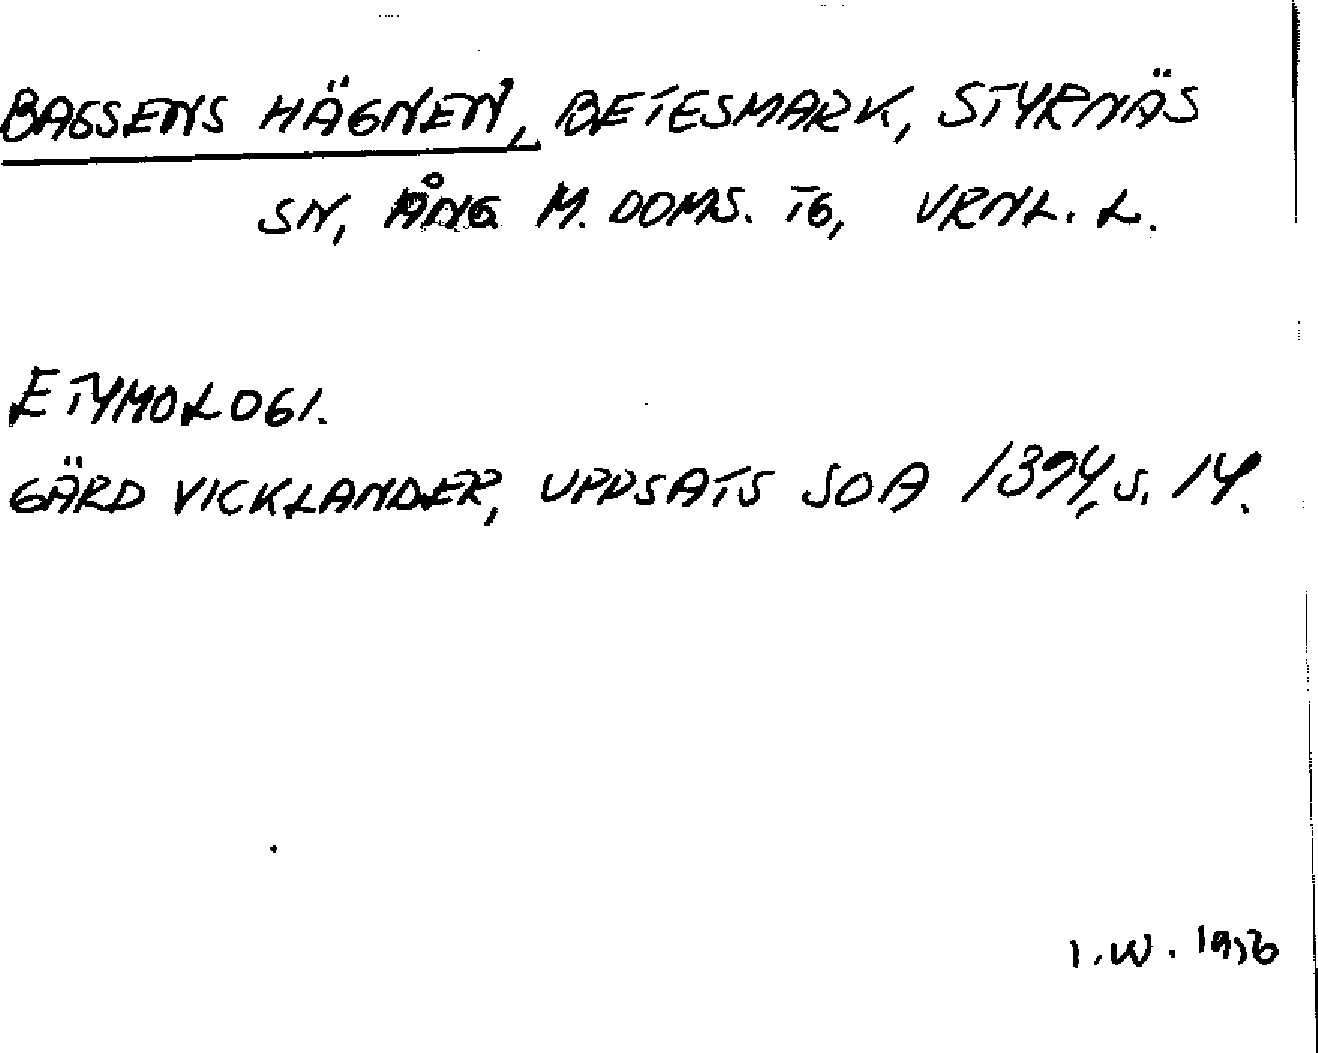 BAGSENS HÄGNEN, BETESMARK, STYRNÄS
SN, ÅNG M. DOMS. TG, VRNL. L.
ETYMOLOGI.
GÄRD VICKLANDER, UPPSATS SOA 1394, S. 14.
I.W.